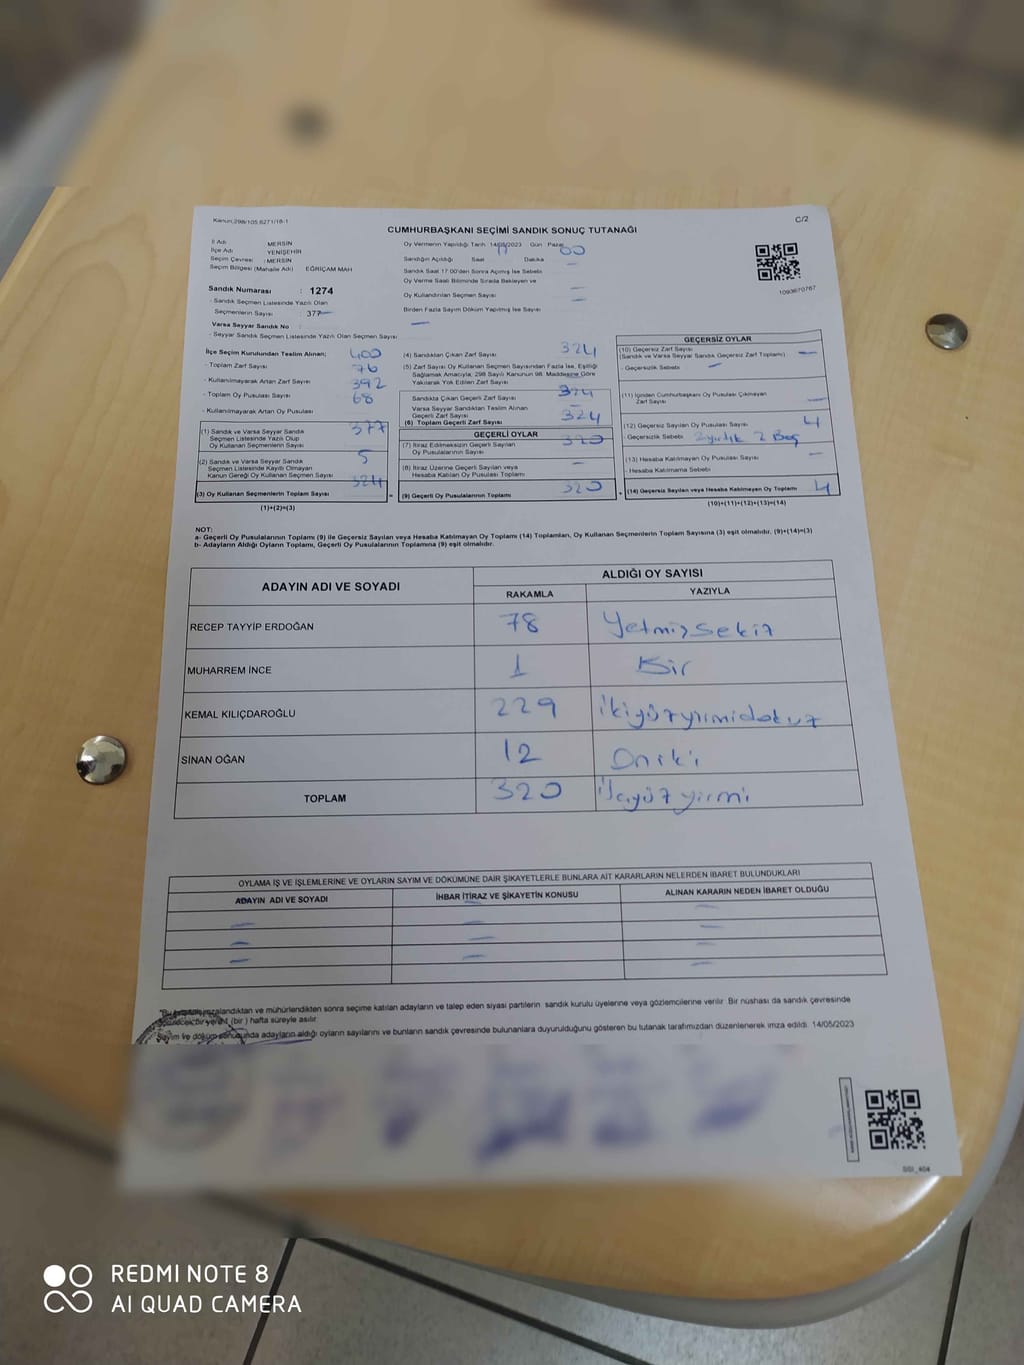 Kanun;298/105.6271/18-1
C/2
CUMHURBAŞKANI SEÇİMİ SANDIK SONUÇ TUTANAĞI
İl Adı MERSİN
İlçe Adı YENİŞEHİR
Seçim Çevresi : MERSİN
Seçim Bölgesi (Mahalle Adı) EĞRİÇAM MAH
Sandık Numarası : 1274
- Sandık Seçmen Listesinde Yazılı Olan
Seçmenlerin Sayısı : 377
Varsa Seyyar Sandık No
- Seyyar Sandık Seçmen Listesinde Yazılı Olan Seçmen Sayısı
Oy Vermenin Yapıldığı Tarih 14/05/2023 Gün : Pazar
Sandığın Açıldığı Saat 17 Dakika 00
Sandık Saat 17:00'den Sonra Açılmış İse Sebebi
Oy Verme Saati Bitiminde Sırada Bekleyen ve
Oy Kullandırılan Seçmen Sayısı
Birden Fazla Sayım Döküm Yapılmış İse Sayısı
1093670767
İlçe Seçim Kurulundan Teslim Alınan;
- Toplam Zarf Sayısı 400
- Kullanılmayarak Artan Zarf Sayısı 76
- Toplam Oy Pusulası Sayısı 392
- Kullanılmayarak Artan Oy Pusulası 68
(1) Sandık ve Varsa Seyyar Sandık
Seçmen Listesinde Yazılı Olup
Oy Kullanan Seçmenlerin Sayısı 377
(2) Sandık ve Varsa Seyyar Sandık
Seçmen Listesinde Kayıtlı Olmayan
Kanun Gereği Oy Kullanan Seçmen Sayısı 5
(3) Oy Kullanan Seçmenlerin Toplam Sayısı 324
(1)+(2)=(3)
(4) Sandıktan Çıkan Zarf Sayısı 324
(5) Zarf Sayısı Oy Kullanan Seçmen Sayısından Fazla İse, Eşitliği
Sağlamak Amacıyla, 298 Sayılı Kanunun 98. Maddesine Göre
Yakılarak Yok Edilen Zarf Sayısı
Sandıkta Çıkan Geçerli Zarf Sayısı 324
Varsa Seyyar Sandıktan Teslim Alınan
Geçerli Zarf Sayısı
(6) Toplam Geçerli Zarf Sayısı 324
GEÇERLİ OYLAR
(7) İtiraz Edilmeksizin Geçerli Sayılan
Oy Pusulası Sayısı 320
(8) İtiraz Üzerine Geçerli Sayılan veya
Hesaba Katılan Oy Pusulası Toplamı
(9) Geçerli Oy Pusulalarının Toplamı 320
GEÇERSİZ OYLAR
(10) Geçersiz Zarf Sayısı
(Sandık ve Varsa Seyyar Sandık Geçersiz Zarf Toplamı)
- Geçersizlik Sebebi
(11) İçinden Cumhurbaşkanı Oy Pusulası Çıkmayan
Zarf Sayısı
(12) Geçersiz Sayılan Oy Pusulası Sayısı 4
- Geçersizlik Sebebi 2 Boş
(13) Hesaba Katılmayan Oy Pusulası Sayısı
- Hesaba Katılmama Sebebi
(14) Geçersiz Sayılan veya Hesaba Katılmayan Oy Toplamı 4
(10)+(11)+(12)+(13)=(14)
NOT:
a- Geçerli Oy Pusulalarının Toplamı (9) ile Geçersiz Sayılan veya Hesaba Katılmayan Oy Toplamı (14) Toplamları, Oy Kullanan Seçmenlerin Toplam Sayısına (3) eşit olmalıdır. (9)+(14)=(3)
b- Adayların Aldığı Oyların Toplamı, Geçerli Oy Pusulalarının Toplamına (9) eşit olmalıdır.
ADAYIN ADI VE SOYADI ALDIĞI OY SAYISI
RAKAMLA YAZIYLA
RECEP TAYYİP ERDOĞAN 78 Yetmişsekiz
MUHARREM İNCE 1 Bir
KEMAL KILIÇDAROĞLU 229 ikiyüzyirmidokuz
SİNAN OĞAN 12 Oniki
TOPLAM 320 üçyüz yirmi
OYLAMA İŞ VE İŞLEMLERİNE VE OYLARIN SAYIM VE DÖKÜMÜNE DAİR ŞİKAYETLERLE BUNLARA AİT KARARLARIN NELERDEN İBARET BULUNDUKLARI
ADAYIN ADI VE SOYADI İHBAR İTİRAZ VE ŞİKAYETİN KONUSU ALINAN KARARIN NEDEN İBARET OLDUĞU
imzalandıktan ve mühürlendikten sonra seçime katılan adayların ve talep eden siyasi partilerin sandık kurulu üyelerine veya gözlemcilerine verilir. Bir nüshası da sandık çevresinde
bir yere 1 (bir) hafta süreyle asılır.
Sayım ve döküm sonucunda adayların aldığı oyların sayılarını ve bunların sandık çevresinde bulunanlara duyurulduğunu gösteren bu tutanak tarafımızdan düzenlenerek imza edildi. 14/05/2023
REDMI NOTE 8
AI QUAD CAMERA